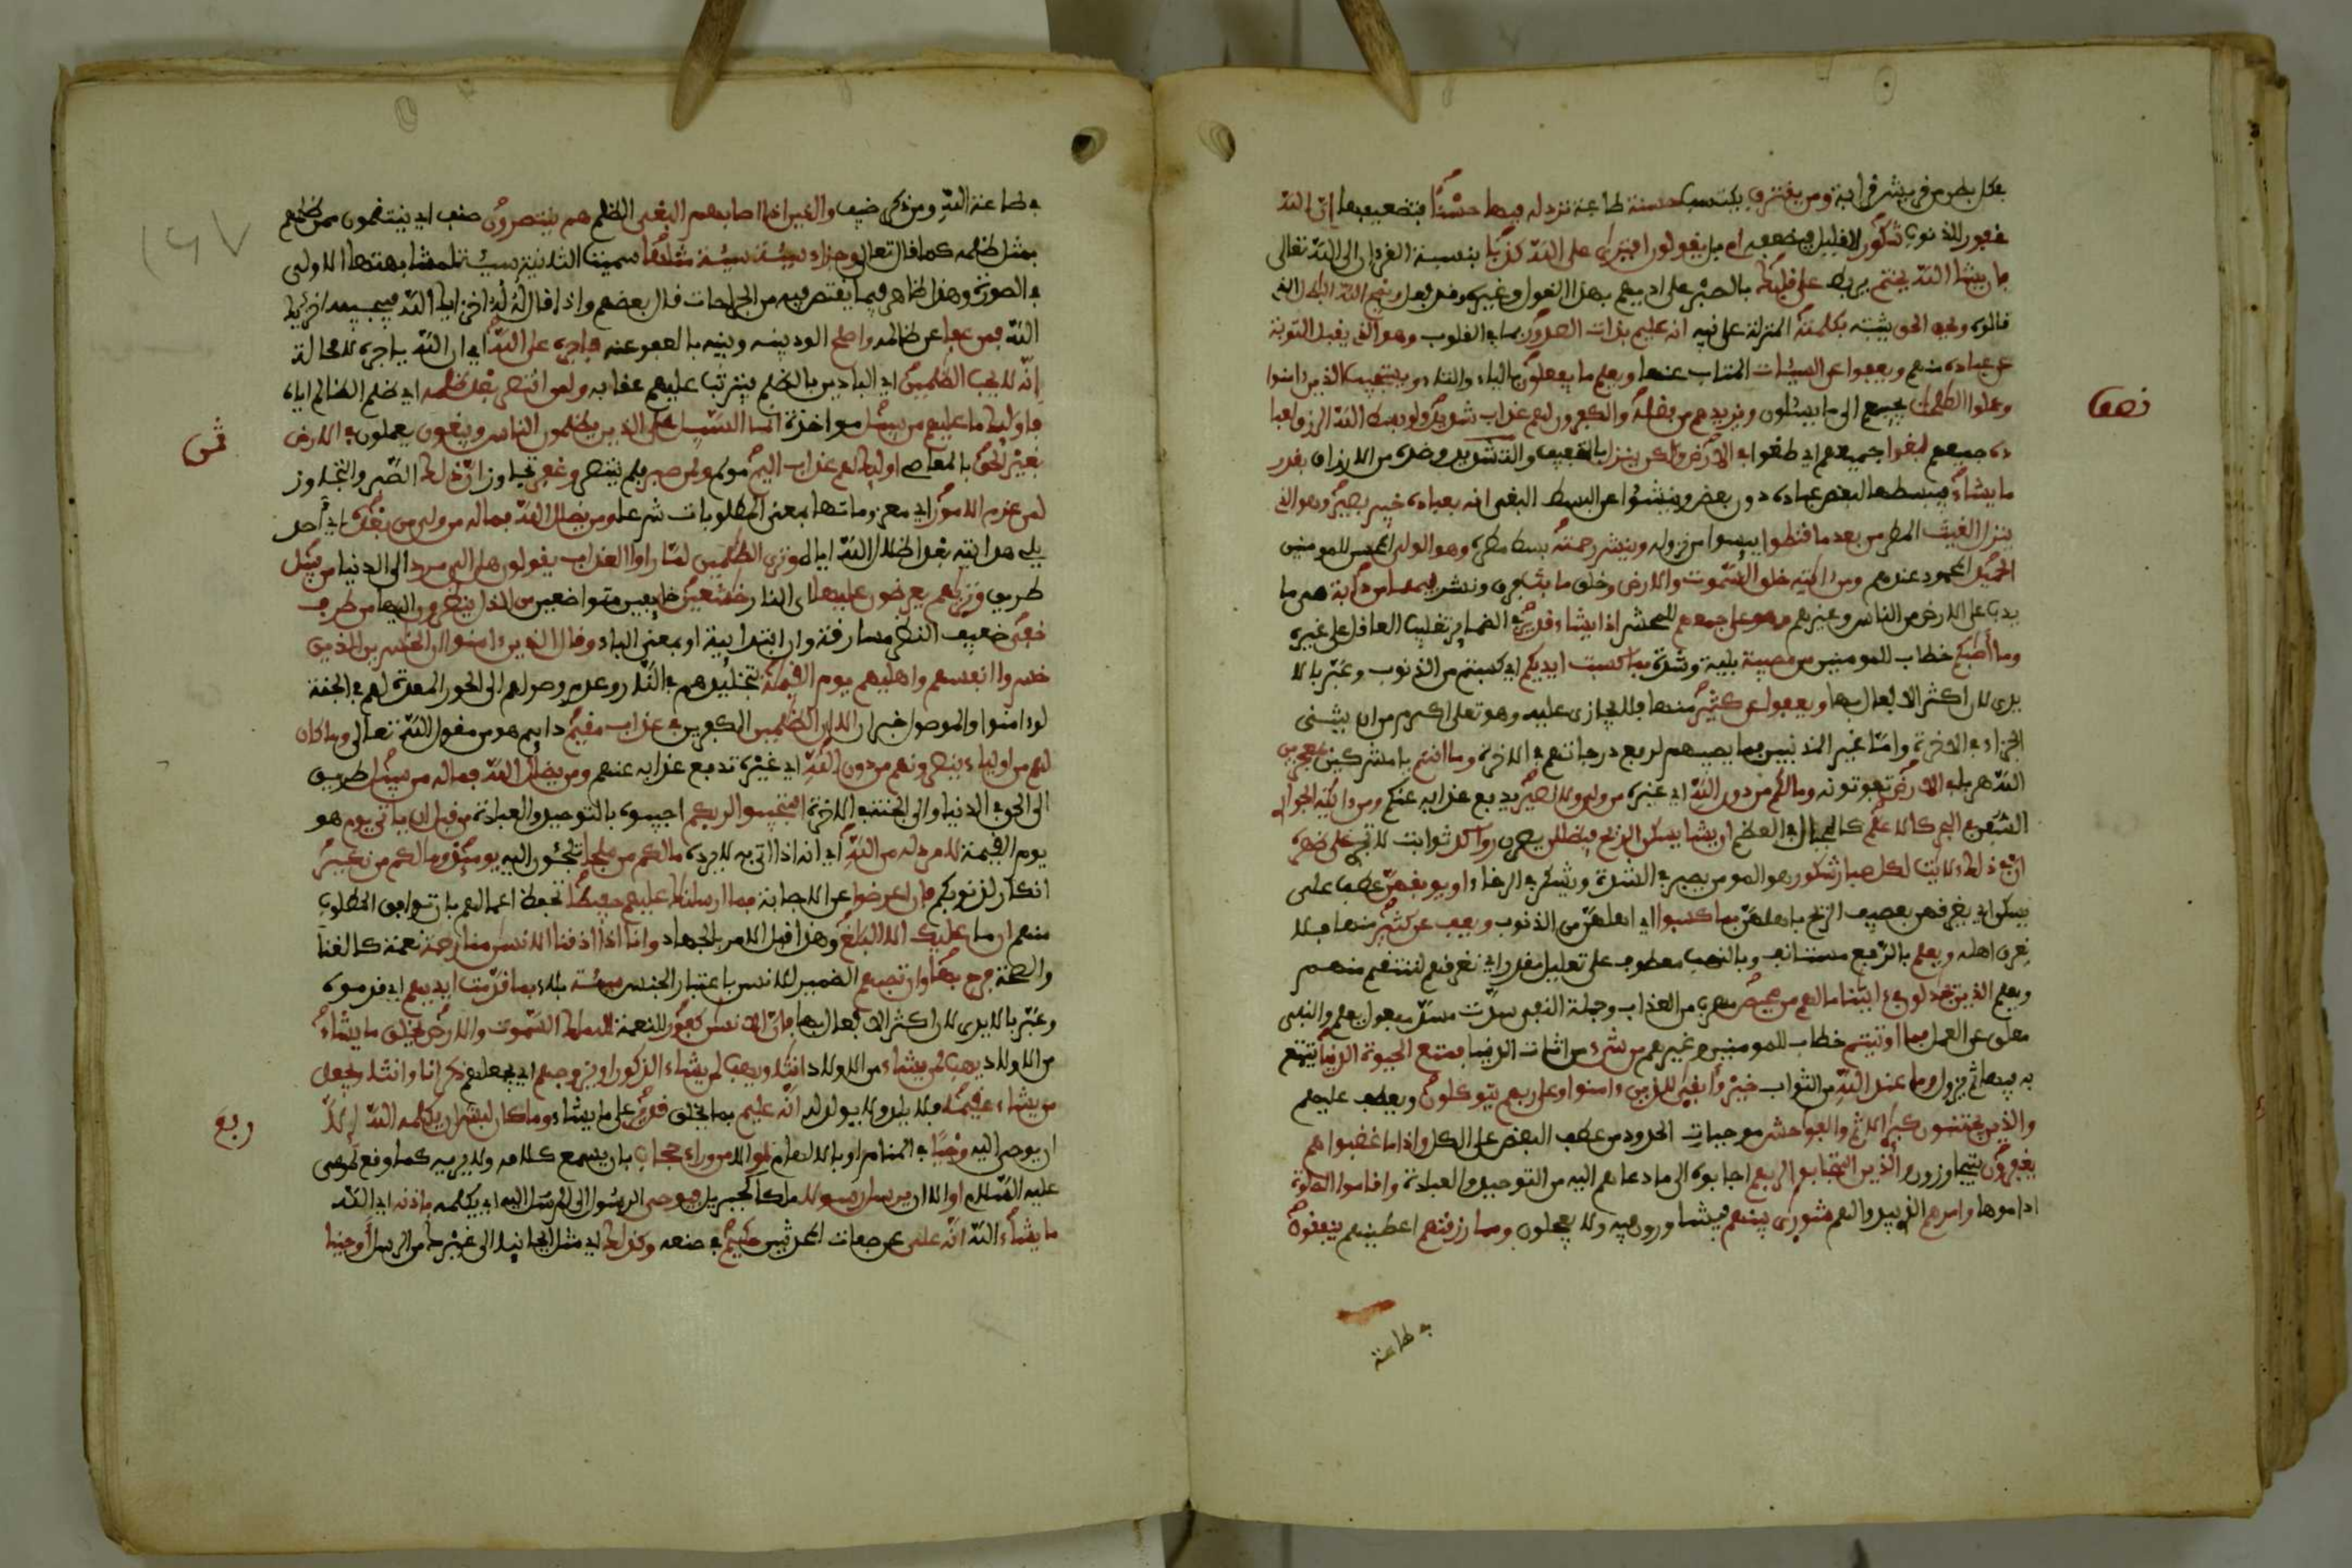 بكل بطن من قريش قرابة ومن يقترف يكتسب حسنة طاعة نزد له فيها حسنا بتضعيفها ان الله
غفور للذنوب شكور للقليل فيضعفه ام بل يقولون افترى على الله كذبا بنسبة القرءان الى الله تعالى
فان يشإ الله يختم يربط على قلبك بالصبر على اذيهم بهذا القول وغيره وقد فعل ويمح الله الباطل الذي
قالوه ويحق الحق يثبته بكلمته المنزلة على نبيه انه عليم بذات الصدور بما في القلوب وهو الذي يقبل التوبة
عن عباده منهم ويعفوا عن السيئات المتاب عنها ويعلم ما يفعلون بالياء والتاء ويستجيب الذين ءامنوا
وعملوا الصلحت يجيبهم الى ما يسئلون ويزيدهم من فضله والكفرون لهم عذاب شديد ولو بسط الله الرزق لعبا
ده جميعهم لبغوا جميعهم اي طغوا في الارض ولكن ينزل بالتخفيف والتشديد وضده من الارزاق بقدر
ما يشاء فيبسطها لبعض عباده دون بعض وينشؤا عن البسط البغي انه بعباده خبير بصير وهو الذي
ينزل الغيث المطر من بعد ما قنطوا ييسوا من نزوله وينشر رحمته يبسط مطره وهو الولي المحسن للمومنين
الحميد المحمود عندهم ومن ءايته خلق السموت والارض وخلق ما بث فرق ونشر فيهما من دابة هي ما
يدب على الارض من الناس وغيرهم وهو على جمعهم للحشر اذا يشاء قدير في الضمير تغليب العاقل على غيره
وما اصبكم خطاب للمومنين من مصيبة بلية وشدة بما كسبت ايديكم اي كسبتم من الذنوب وعبر بالا
يدي لان اكثر الافعال بها ويعفوا عن كثير منها فلا يجازي عليه وهو تعلى اكرم من ان يثني
الجزاء في الاخرة واما غير المذنبين بما يصيبهم لرفع درجاتهم في الاخرة وما انتم يا مشركين بمعجزين
الله هربا في الارض تفوتونه وما لكم من دون الله اي غيره من ولي ولا نصير يدفع عذابه عنكم ومن ءايته الجوار
السفن في البحر كالاعلم كالجبال في العظم ان يشا يسكن الريح فيظللن يصرن رواكد ثوابت لا تجري على ظهره
ان في ذلك لايت لكل صبار شكور هو المومن يصبر في الشدة ويشكر في الرخاء او يوبقهن عطف على
يسكن اي يغرقهن بعصف الريح باهلهن بما كسبوا اي اهلهن من الذنوب ويعف عن كثير منها فلا
يغرق اهله ويعلم بالرفع مستانف وبالنصب معطوف على تعليل مقدر اي نغرقهم لننتقم منهم
ويعلم الذين يجدلون في ءايتنا ما لهم من محيص مهرب من العذاب وجملة النفي سدت مسد مفعولي يعلم والنفي
معلق عن العمل فما اوتيتم خطاب للمومنين وغيرهم من شيء من اثاث الدنيا فمتع الحيوة الدنيا يتمتع
به فيها ثم يزول وما عند الله من الثواب خير وابقى للذين ءامنوا وعلى ربهم يتوكلون ويعطف عليهم
والذين يجتنبون كبير الاثم والفواحش موجبات الحدود من عطف البعض على الكل واذا ما غضبوا هم
يغفرون يتجاوزون والذين استجابوا لربهم اجابوه الى ما دعاهم اليه من التوحيد والعبادة واقاموا الصلوة
اداموها وامرهم الذي يبدوا لهم شورى بينهم يتشاورون فيه ولا يعجلون ومما رزقنهم اعطينهم ينفقون
في طاعة
نصف
في طاعة الله ومن ذكر صنف والذين اذا اصابهم البغي الظلم هم ينتصرون صنف اي ينتقمون ممن ظلمهم
بمثل ظلمه كما قال تعالى وجزاء سيئة سيئة مثلها سميت الثانية سيئة لمشابهتها الاولى
في الصورة وهذا ظاهر فيما يقتص فيه من الجراحات قال بعضهم واذا قال له اخزاك الله فيجيبه اخزاك
الله فمن عفا عن ظالمه واصلح الود بينه وبينه بالعفو عنه فاجره على الله اي ان الله ياجره لا محالة
انه لا يحب الظلمين اي البادين بالظلم يترتب عليهم عقابه ولمن انتصر بعد ظلمه اي ظلم الظالم اياه
فاولئك ما عليهم من سبيل مواخذة انما السبيل على الذين يظلمون الناس ويبغون يعملون في الارض
بغير الحق بالمعاصي اولئك لهم عذاب اليم مولم ولمن صبر فلم ينتصر وغفر تجاوز ان ذلك الصبر والتجاوز
لمن عزم الامور اي معزوماتها بمعنى المطلوبات شرعا ومن يضلل الله فما له من ولي من بعده اي احد
يلي هدايته بعد اضلال الله اياه وترى الظلمين لما راوا العذاب يقولون هل الى مرد الى الدنيا من سبيل
طريق وتريهم يعرضون عليها اي النار خشعين خايفين متواضعين من الذل ينظرون اليها من طرف
خفي ضعيف النظر مسارقة ومن ابتدائية او بمعنى الباء وقال الذين ءامنوا ان الخسرين الذين
خسروا انفسهم واهليهم يوم القيمة بتخليدهم في النار وعدم وصولهم الى الحور المعدة لهم في الجنة
لو ءامنوا والموصول خبر ان الا ان الظلمين الكفرين في عذاب مقيم دايم هو من مقول الله تعالى وما كان
لهم من اولياء ينصرونهم من دون الله اي غيره تدفع عذابه عنهم ومن يضلل الله فما له من سبيل طريق
الى الحق في الدنيا والى الجنة في الاخرة استجيبوا لربكم اجيبوه بالتوحيد والعبادة من قبل ان ياتي يوم هو
يوم القيمة لا مرد له من الله اي انه اذا اتى به لا يرده ما لكم من ملجا تلجئون اليه يومئذ وما لكم من نكير
انكار لذنوبكم فان اعرضوا عن الاجابة فما ارسلنك عليهم حفيظا تحفظ اعمالهم بان توافق المطلوب
منهم ان ما عليك الا البلغ وهذا قبل الامر بالجهاد وانا اذا اذقنا الانسن منا رحمة نعمة كالغنا
والصحة فرح بها وان تصبهم الضمير للانسن باعتبار الجنس سيئة بلاء بما قدمت ايديهم اي قدموه
وعبر بالايدي لان اكثر الافعال بها فان الانسن كفور للنعمة لله ملك السموت والارض يخلق ما يشاء
من الاولاد يهب لمن يشاء من الاولاد انثا ويهب لمن يشاء الذكور او يزوجهم اي يجعلهم ذكرانا وانثا ويجعل
من يشاء عقيما فلا يلد ولا يولد له انه عليم بما يخلق قدير على ما يشاء وما كان لبشر ان يكلمه الله الا
ان يوحى اليه وحيا في المنام او بالالهام او الا من وراء حجاب بان يسمع كلامه ولا يريه كما وقع لموسى
عليه السلام او الا ان يرسل رسولا ملكا كجبريل فيوحي الرسول الى المرسل اليه اي يكلمه باذنه اي الله
ما يشاء الله انه علي عن صفات المحدثين حكيم في صنعه وكذلك اي مثل ايحاينا الى غيرك من الرسل اوحينا
ثمن
ربع